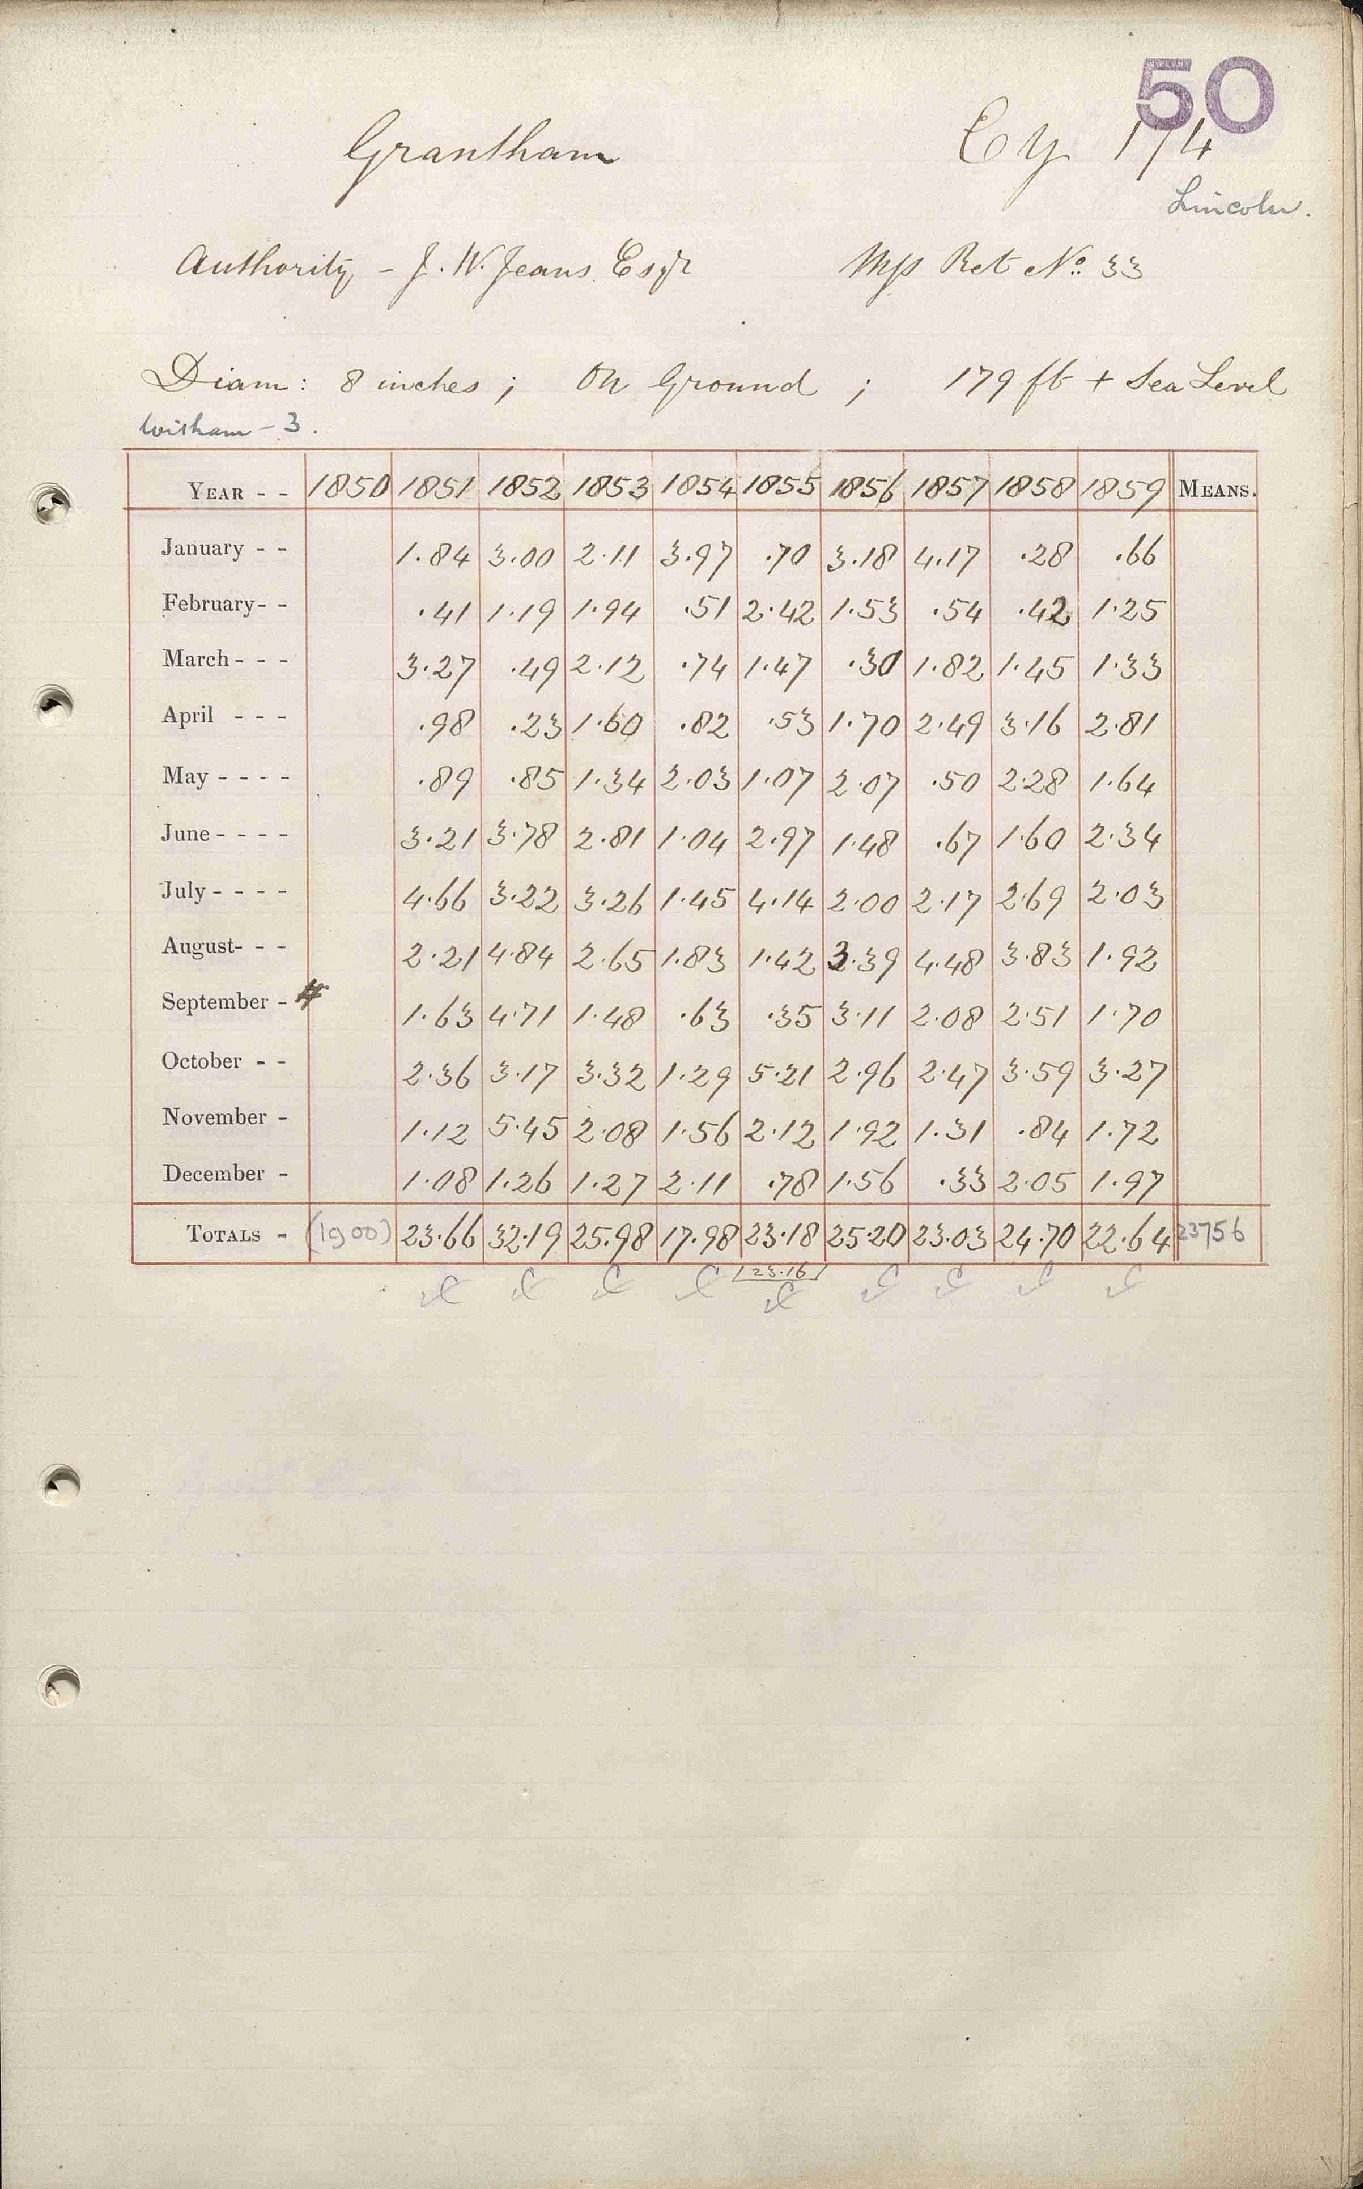 50
Grantham
Lincoln.
Authority - J. W. Jeans Esqr
Mss Ret No. 33
Diam: 8 inches ; On Ground ; 179 ft + Sea Level
Witham - 3.
YEAR - - 1850 1851 1852 1853 1854 1855 1856 1857 1858 1859 MEANS.
January - - 1.84 3.00 2.11 3.97 .70 3.18 4.17 .28 .66
February- - .41 1.19 1.94 .51 2.42 1.53 .54 .42 1.25
March - - - 3.27 .49 2.12 .74 1.47 .30 1.82 1.45 1.33
April - - - .98 .23 1.60 .82 .53 1.70 2.49 3.16 2.81
May - - - - .89 .85 1.34 2.03 1.07 2.07 .50 2.28 1.64
June - - - - 3.21 3.78 2.81 1.04 2.97 1.48 .67 1.60 2.34
July - - - - 4.66 3.22 3.26 1.45 4.14 2.00 2.17 2.69 2.03
August- - - 2.21 4.84 2.65 1.83 1.42 3.39 4.48 3.83 1.92
September - # 1.63 4.71 1.48 .63 .35 3.11 2.08 2.51 1.70
October - - 2.36 3.17 3.32 1.29 5.21 2.96 2.47 3.59 3.27
November - 1.12 5.45 2.08 1.56 2.12 1.92 1.31 .84 1.72
December - 1.08 1.26 1.27 2.11 .78 1.56 .33 2.05 1.97
TOTALS - (1900) 23.66 32.19 25.98 17.98 23.18 25.20 23.03 24.70 22.64 23756
23.16